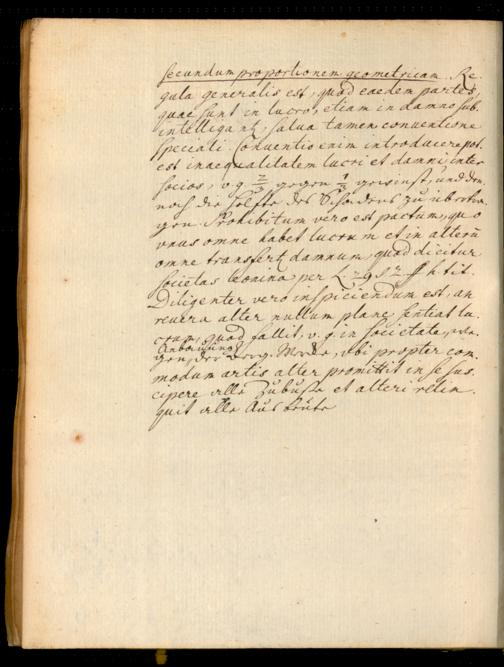 secundum proportionem geometricam. Re
gula generalis est, quod eaedem partes,
quae sunt in lucro, etiam in damno sub.
intelligant, salva tamen conventione
speciali. Conventio enim introducere pot.
est inaequalitatem lucri et damni inter
socios, v. g. 2/3 gegen 1/3 und den
noch die Helfte des Schadens zu übertra
gen. Prohibitum vero est pactum, quo
unus omne habet lucrum et in alterū
omne transfert damnum, quod dicitur
Societas leonina per L. 29 § 2 ff h. tit.
Diligenter vero inspiciendum est, an
revera alter nullum plane sentiat lu
crum, quod fallit, v. g. in Societate,
der Berg-Wercke, ubi propter com
modum artis alter promittit in se sus
cipere alle Zubuße et alteri relin
quit alle Ausbeute